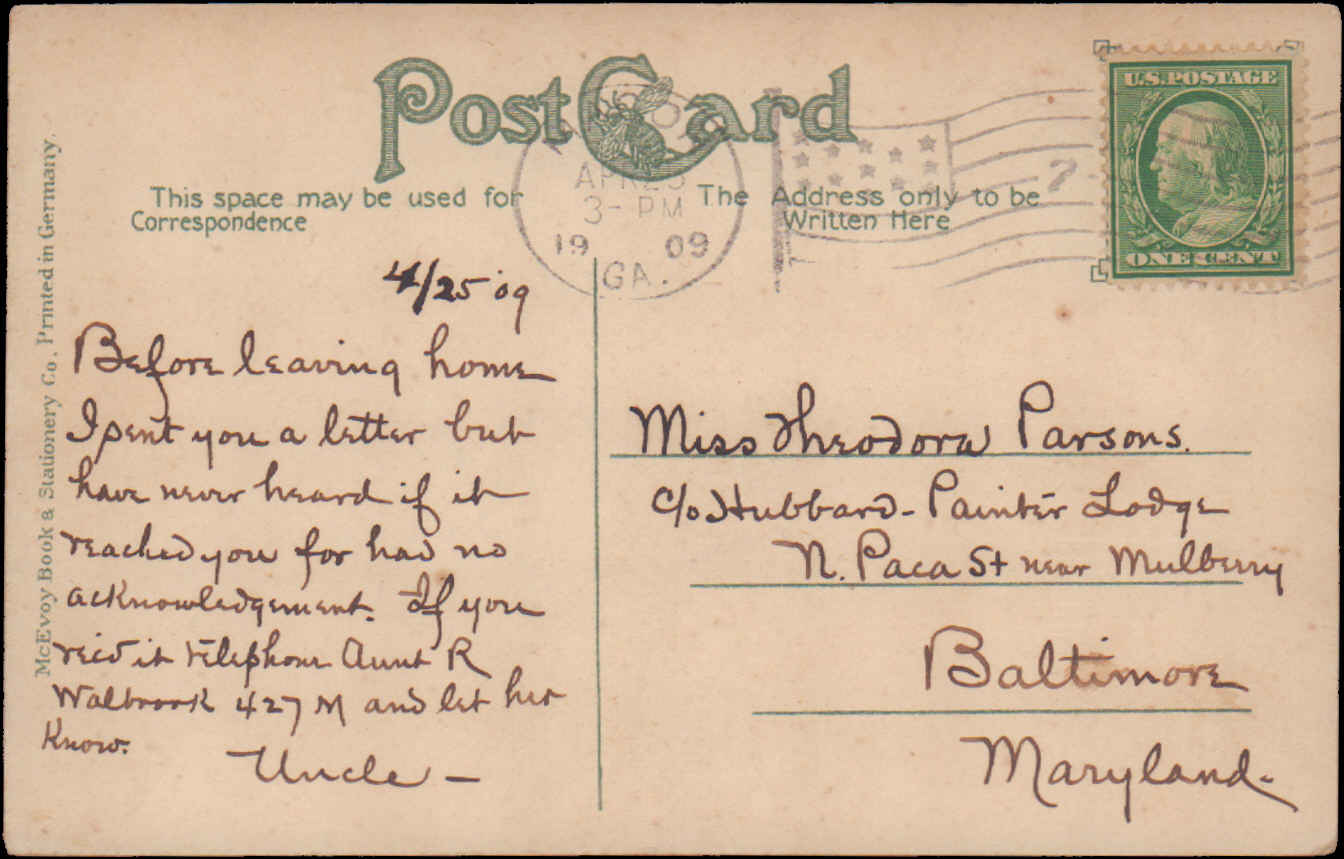 Post Card
This space may be used for
Correspondence
The Address only to be
Written Here
McEvoy Book & Stationery Co. Printed in Germany.
APR 25
3- PM
19 09
GA.
7
U.S. POSTAGE
ONE CENT
4/25 '09
Before leaving home
I sent you a letter but
have never heard if it
reached you for had no
acknowledgement. If you
rec'd it telephone Aunt R
Walbrook 427 M and let her
know.
Uncle —
Miss Theodora Parsons.
c/o Hubbard - Painter Lodge
N. Paca St near Mulberry
Baltimore
Maryland.